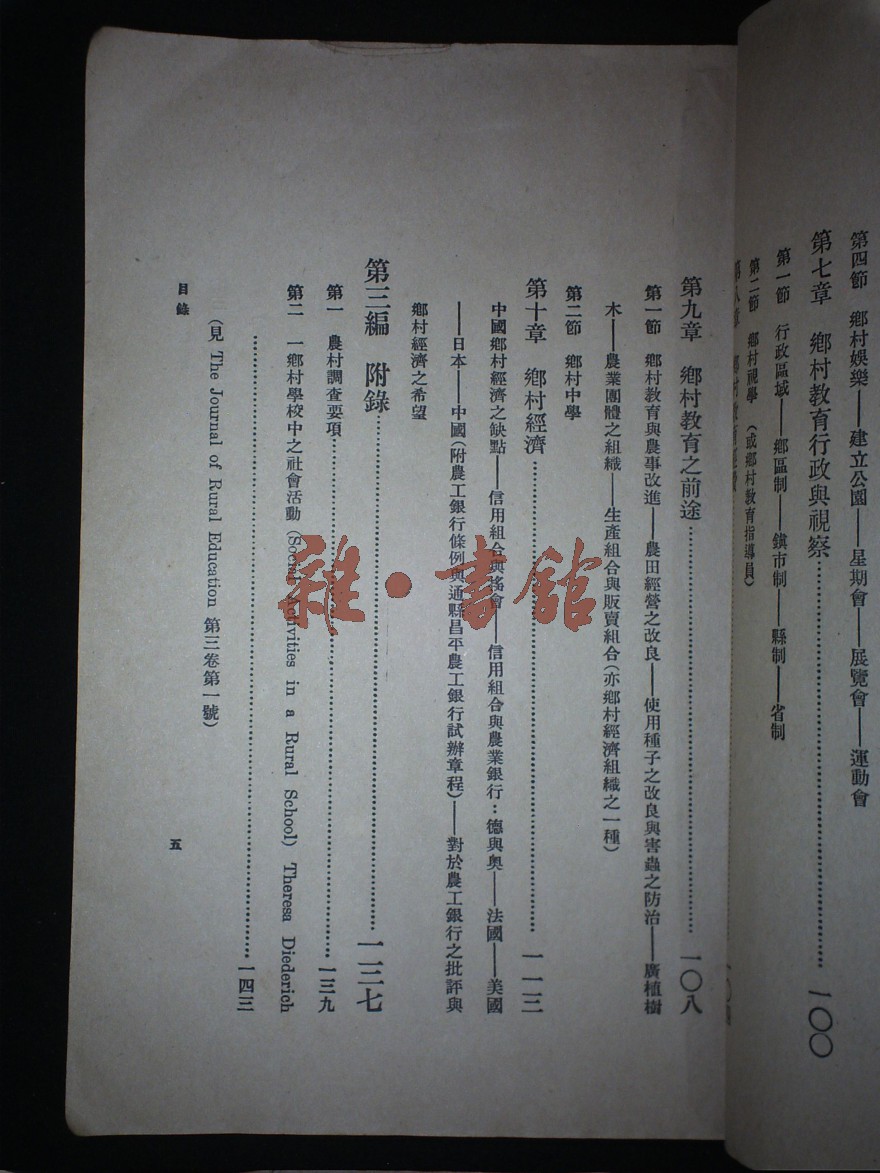 第四節 鄉村娛樂——建立公園——星期會——展覽會——運動會
第七章 鄉村教育行政與視察……一〇〇
第一節 行政區域——鄉區制——鎮市制——縣制——省制
第二節 鄉村視學（或鄉村教育指導員）
第九章 鄉村教育之前途……一〇八
第一節 鄉村教育與農事改進——農田經營之改良——使用種子之改良與害蟲之防治——廣植樹
木——農業團體之組織——生產組合與販賣組合(亦鄉村經濟組織之一種)
第二節 鄉村中學
第十章 鄉村經濟……一一三
中國鄉村經濟之缺點——信用組合與搖會——信用組合與農業銀行：德與奧——法國——美國
——日本——中國(附農工銀行條例與通縣昌平農工銀行試辦章程)——對於農工銀行之批評與
鄉村經濟之希望
第三編 附錄……一三七
第一 農村調查要項……一三九
第二 一鄉村學校中之社會活動 (Social Activities in a Rural School) Theresa Diederich
……一四三
(見 The Journal of Rural Education 第三卷第一號)
目錄
五
雜·書館